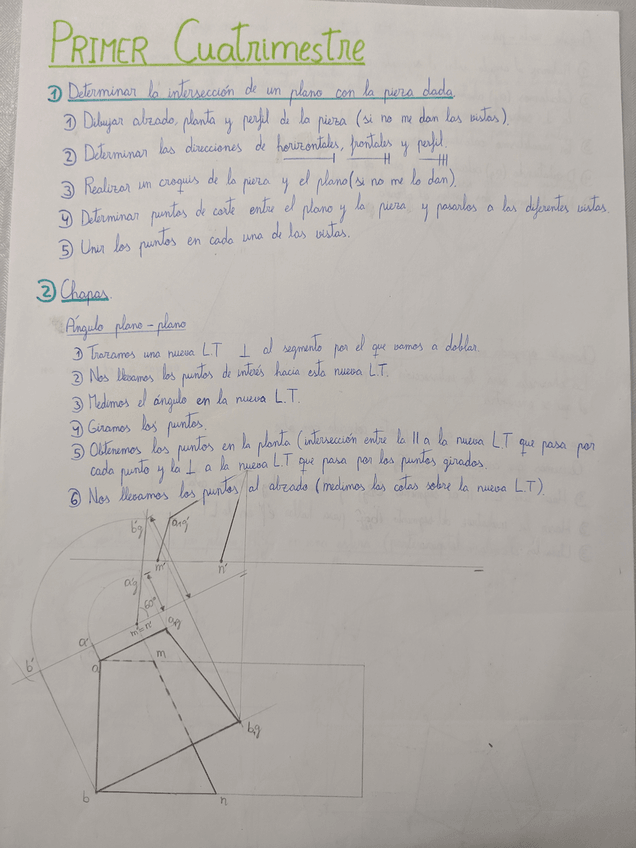 PRIMER Cuatrimestre
① Determinar la intersección de un plano con la pieza dada
① Dibujar alzado, planta y perfil de la pieza (si no me dan las vistas).
② Determinar las direcciones de horizontales, frontales y perfil.
I II III
③ Realizar un croquis de la pieza y el plano (si no me lo dan).
④ Determinar puntos de corte entre el plano y la pieza y pasarlos a las diferentes vistas.
⑤ Unir los puntos en cada una de las vistas.
② Chapas
Ángulo plano - plano
① Trazamos una nueva LT ⊥ al segmento por el que vamos a doblar.
② Nos llevamos los puntos de interés hacia esta nueva L.T.
③ Medimos el ángulo en la nueva L.T.
④ Giramos los puntos.
⑤ Obtenemos los puntos en la planta (intersección entre la || a la nueva LT que pasa por
cada punto y la ⊥ a la nueva L.T que pasa por los puntos girados.
⑥ Nos llevamos los puntos al alzado (medimos las cotas sobre la nueva L.T)
b'g
m' n'
a'g
60°
m'≡n'
a'
b'
a m
bg
b n